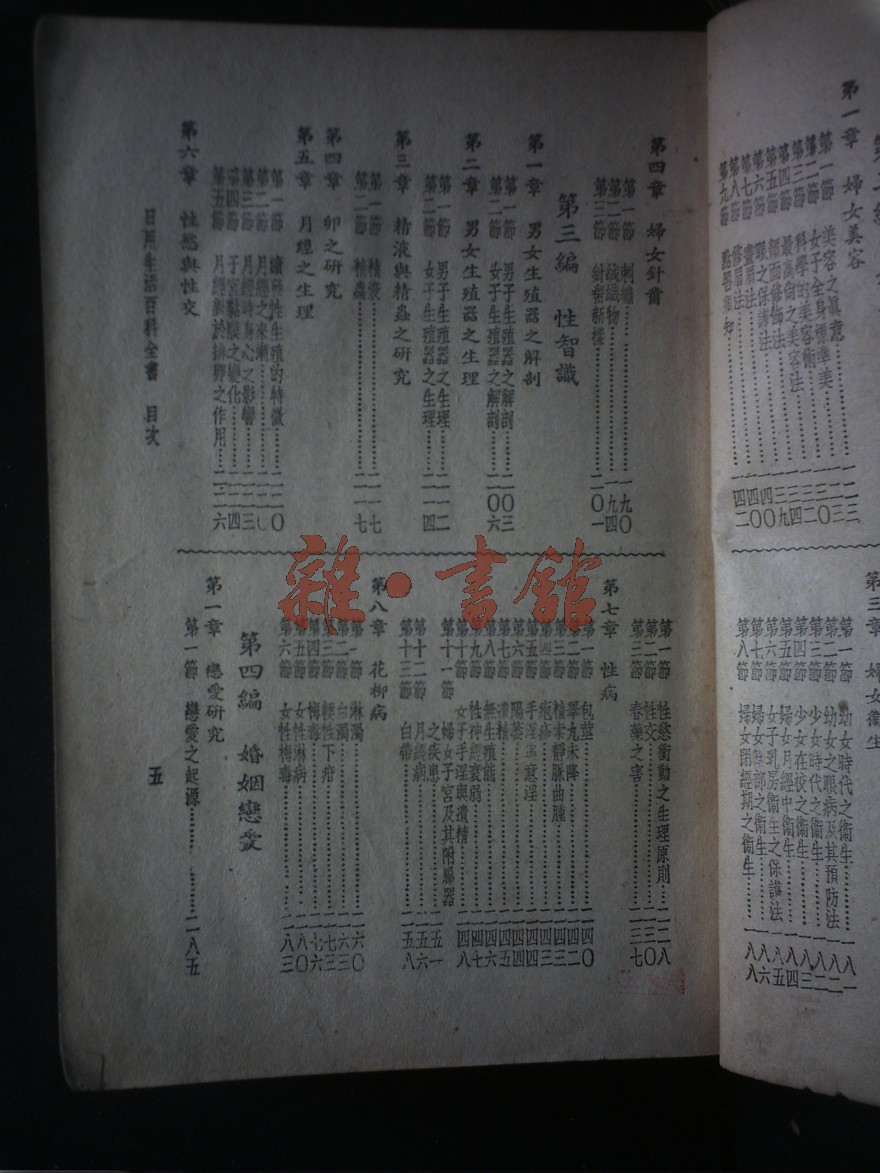 第一章 婦女美容
第一節 美容之真意
第二節 女子全身標準美
第三節 科學的美容術
第四節 最高尚之美容法
第五節 顏面修飾法
第六節 眼之保護法
第七節 畫眉法
第八節 修眉法
第九節
第三章 婦女衛生
第一節 幼女時代之衛生
第二節 幼女之眼病及其預防法
第三節 少女時代之衛生
第四節 少女在校之衛生
第五節 婦女月經中衛生
第六節 女子乳房衛生之保護法
第七節 婦女陰部之衛生
第八節 婦女閉經期之衛生
第四章 婦女針黹
第一節 刺繡 一九〇
第二節 絨織物 一九四
第三節 針黹新樣 二〇一
第三編 性智識
第一章 男女生殖器之解剖
第一節 男子生殖器之解剖 二〇三
第二節 女子生殖器之解剖 二〇六
第二章 男女生殖器之生理
第一節 男子生殖器之生理 二一二
第二節 女子生殖器之生理 二一四
第三章 精液與精蟲之研究
第一節 精液 二一七
第二節 精蟲 二一七
第四章 卵之研究
第五章 月經之生理
第一節 性生殖的特徵 二二〇
第二節 月經之來潮
第三節 月經時身心之影響 二二三
第四節 子宮黏膜之變化 二二四
第五節 月經對於排卵之作用 二二六
第六章 性慾與性交
第一節 性慾衝動之生理原則 二二八
第二節 性交 二三〇
第三節 春藥之害 二三七
第七章 性病
第一節 包莖 二四〇
第二節 睪丸未降 二四二
第三節 精索靜脈曲腫 二四三
第四節 疱疹 二四三
第五節 手淫與意淫 二四四
第六節 陽萎 二四四
第七節 遺精 二四五
第八節 無生殖能 二四六
第九節 性神經衰弱 二四七
第十節 女子手淫與遺精 二四八
第十一節 婦女子宮及其附屬器
之疾患 二五一
第十二節 月經病 二五六
第十三節 白帶 二五八
第八章 花柳病
第一節 淋濁 二六〇
第二節 白濁 二六三
第三節 軟性下疳 二七三
第四節 梅毒 二七六
第五節 女性淋病 二八〇
第六節 女性梅毒 二八三
第四編 婚姻戀愛
第一章 戀愛研究
第一節 戀愛之起源 二八五
日用生活百科全書 目次
五
雜·書館